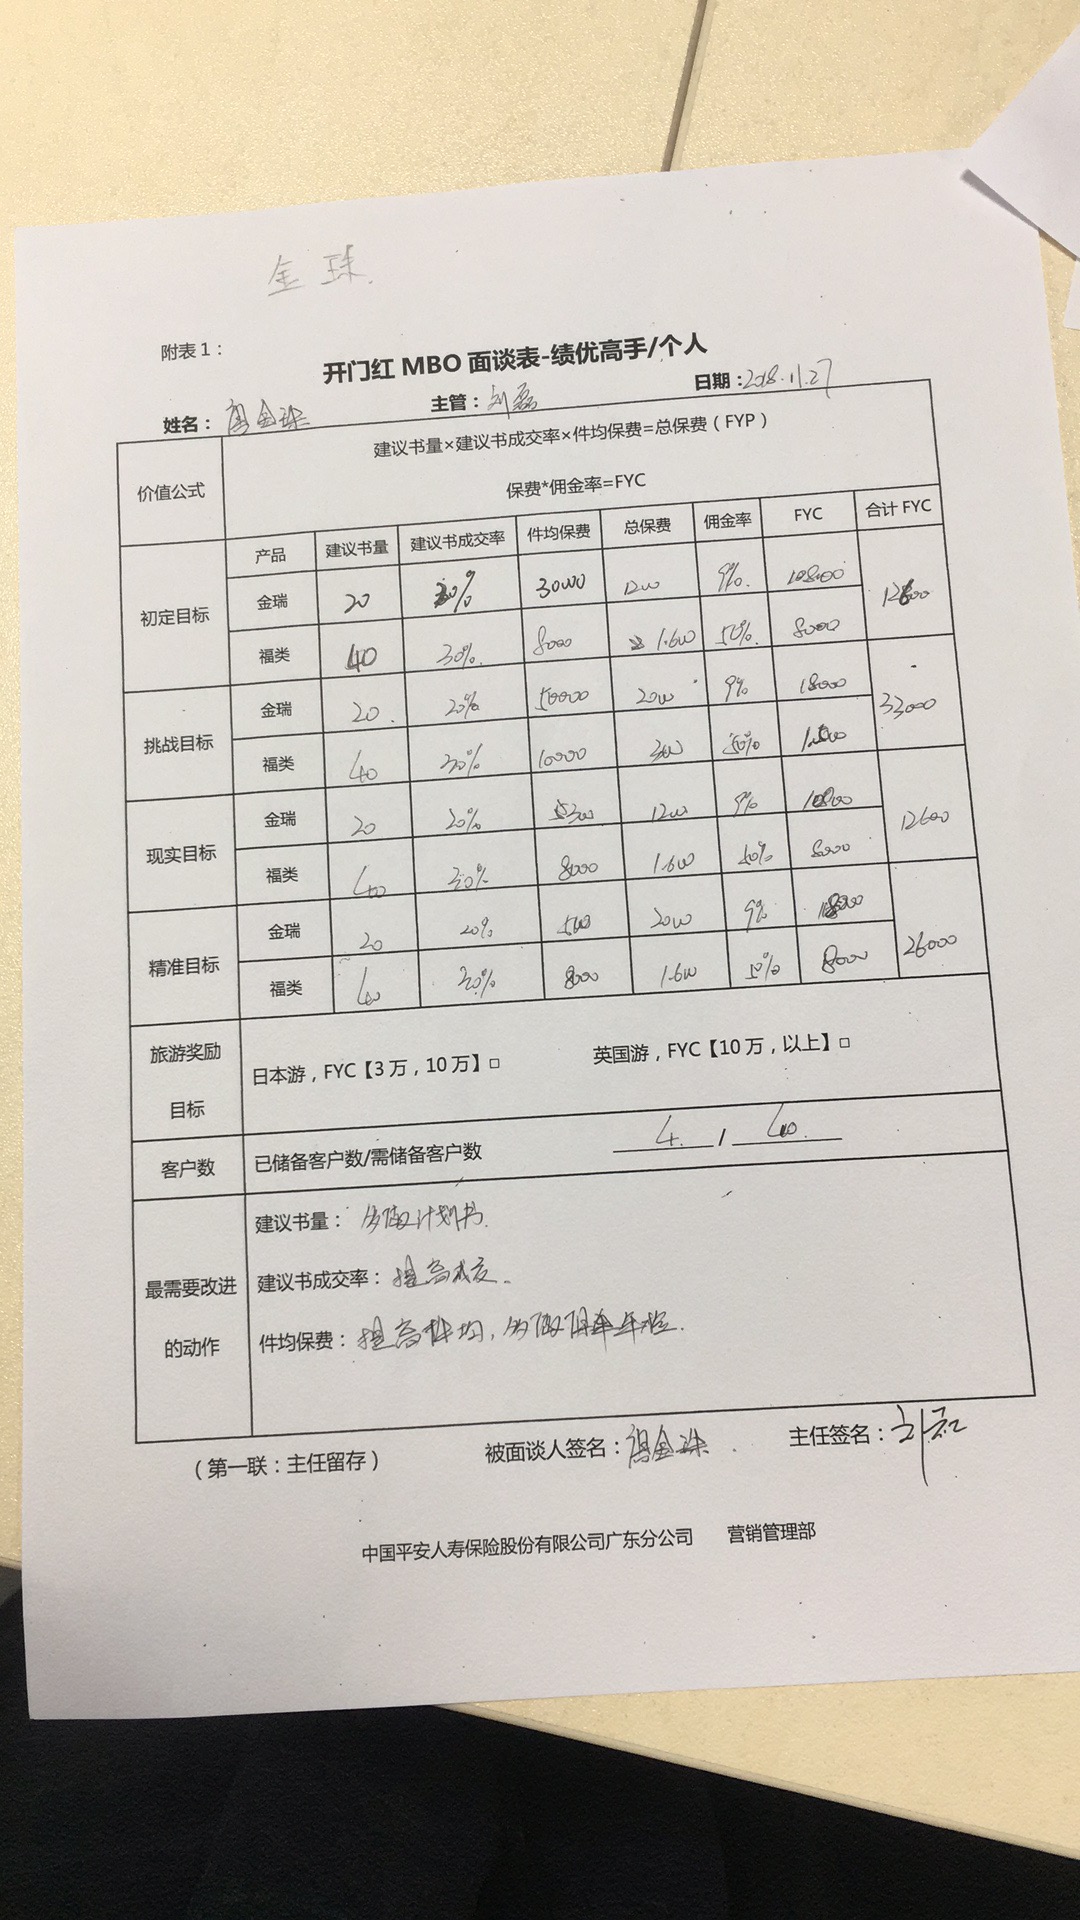 金珠
附表1：
开门红 MBO 面谈表-绩优高手/个人
姓名： 金珠 主管：刘磊 日期：2018.11.27
价值公式
建议书量×建议书成交率×件均保费=总保费（FYP）
保费*佣金率=FYC
产品 建议书量 建议书成交率 件均保费 总保费 佣金率 FYC 合计 FYC
初定目标
金瑞 20 20% 9% 10800
福类 40 30% 8000 50% 8000
挑战目标
金瑞 20 20% 50000 9% 18000 33000
福类 40 30% 10000 50%
现实目标
金瑞 20 20% 9% 10800 12600
福类 40 30% 8000 8000
精准目标
金瑞 20 20% 9% 18000 26000
福类 40 30% 8000 50% 8000
旅游奖励
目标
日本游，FYC【3万，10万】□ 英国游，FYC【10万，以上】□
客户数 已储备客户数/需储备客户数 4 / 40
最需要改进
的动作
建议书量： 多做计划书.
建议书成交率：提高成交.
件均保费：提高件均，多做
（第一联：主任留存） 被面谈人签名： 金珠 主任签名：
中国平安人寿保险股份有限公司广东分公司 营销管理部